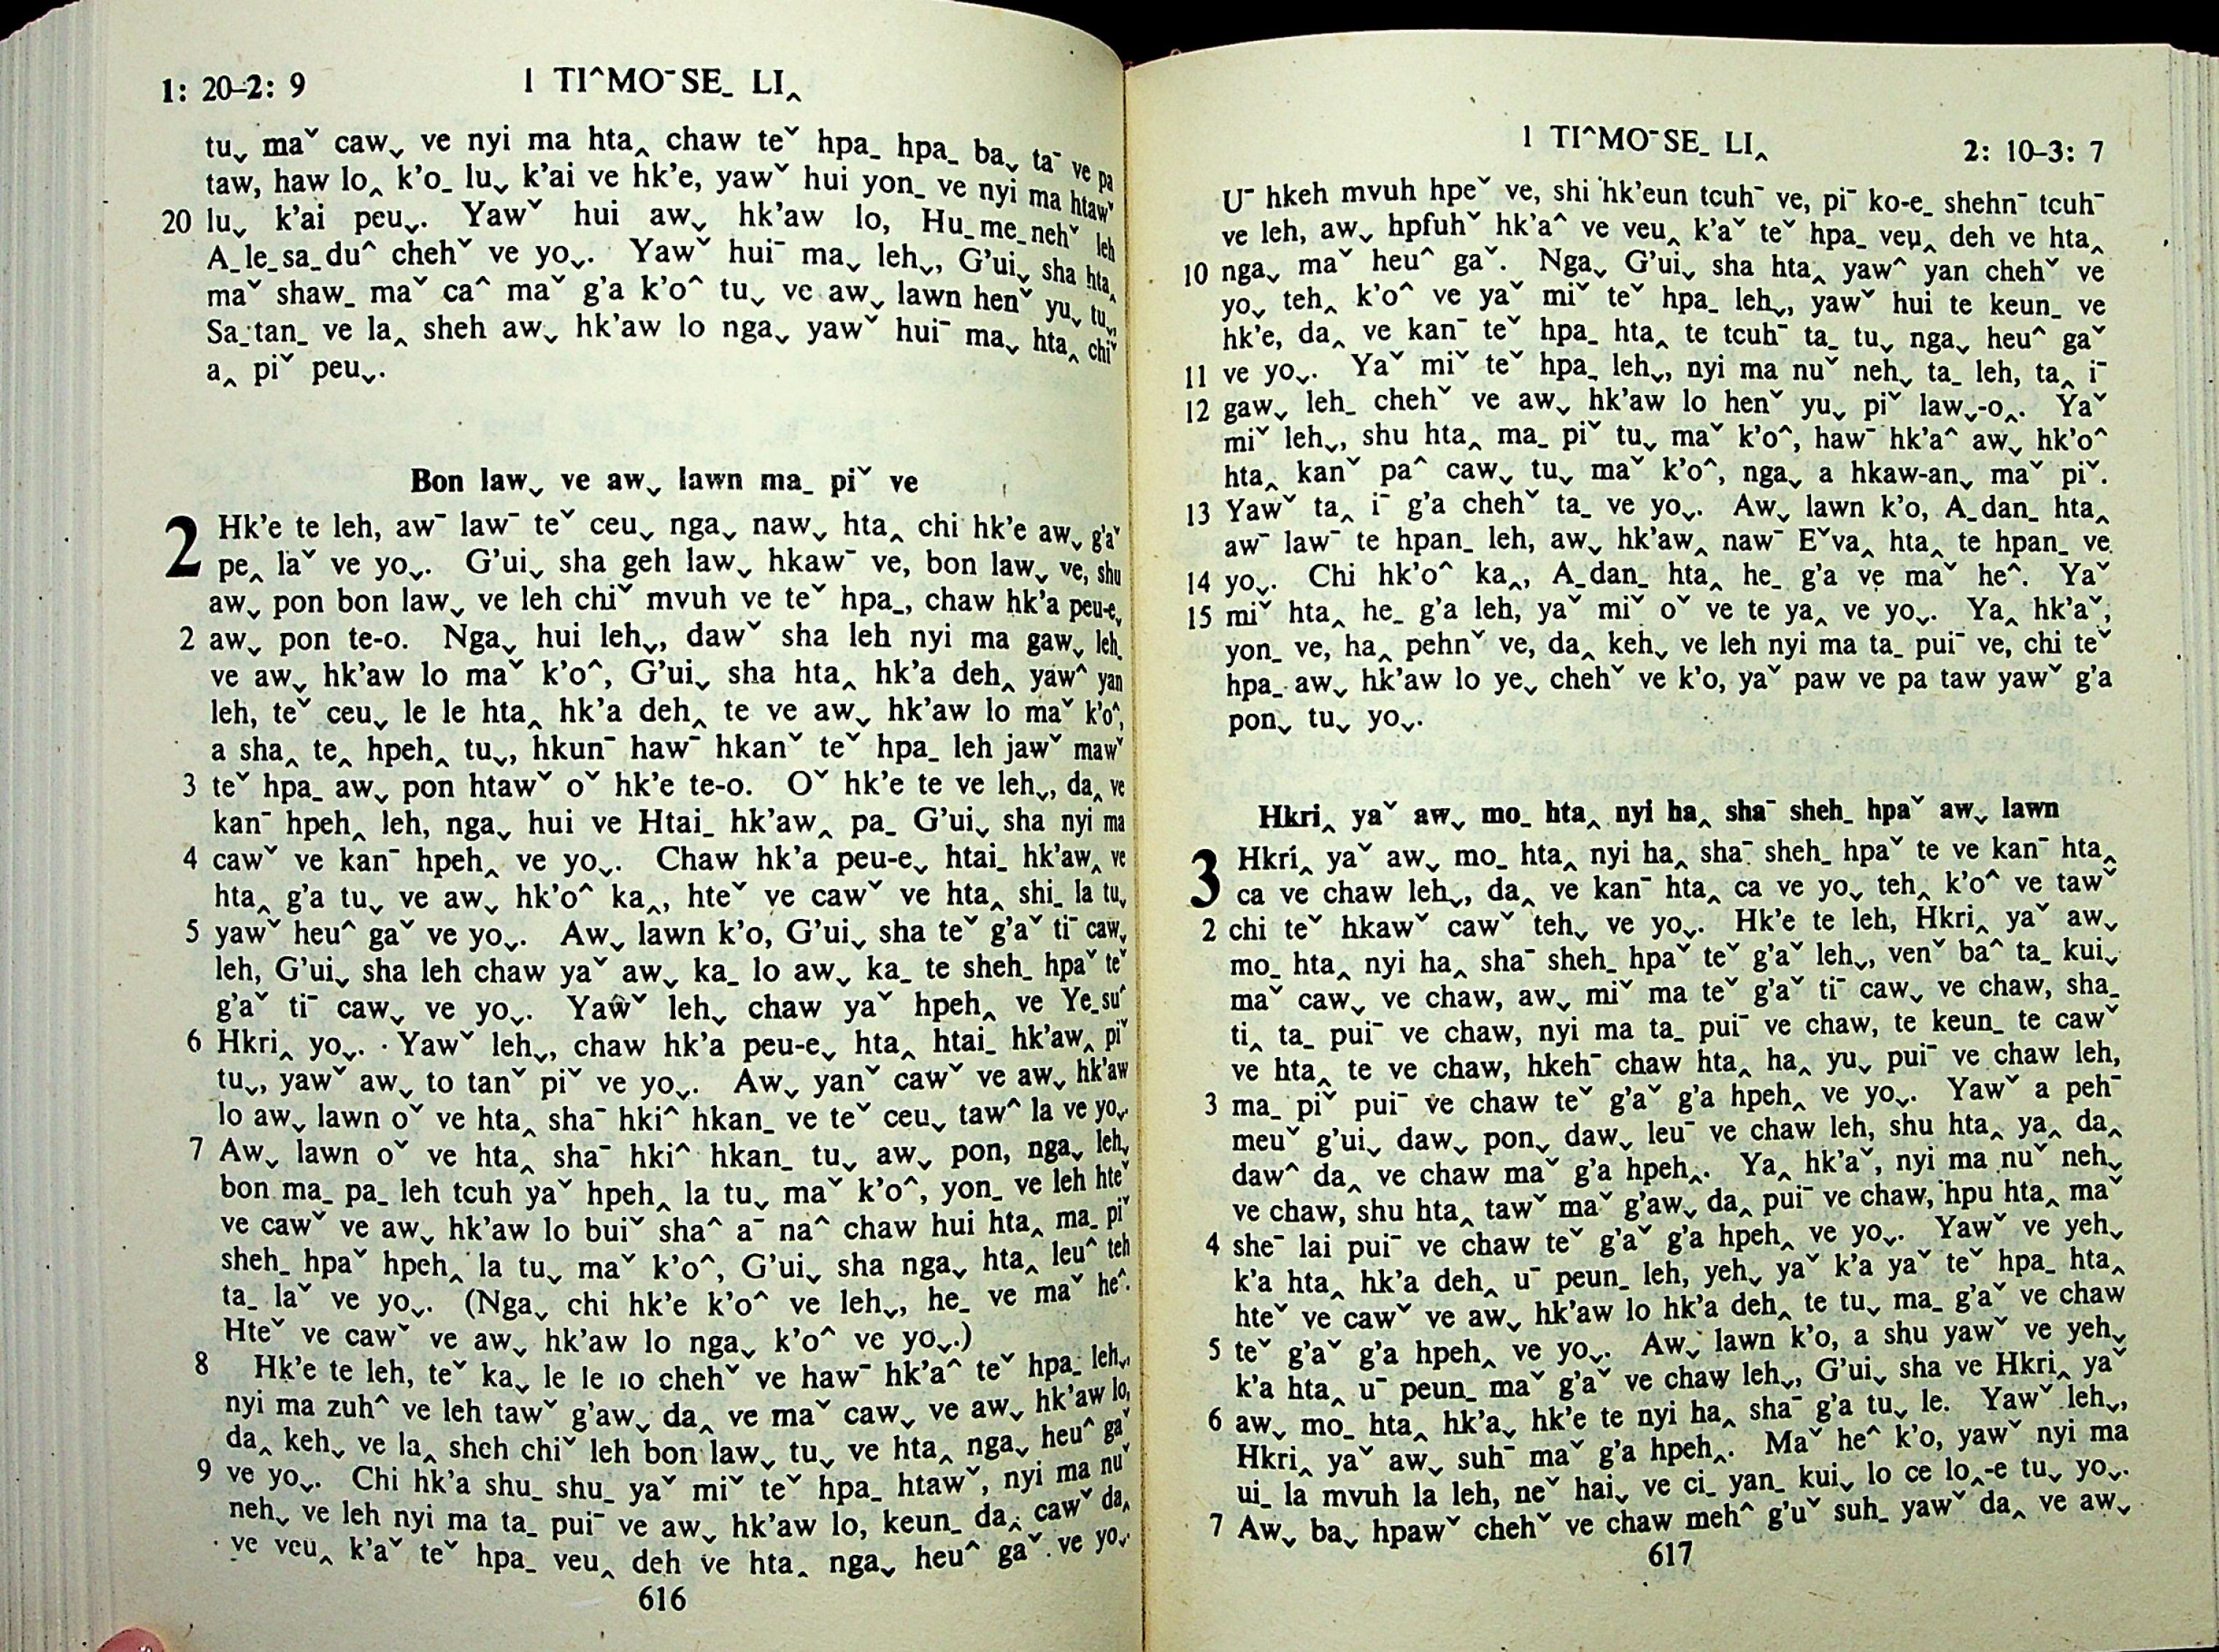 1: 20–2: 9
I TI^MO¯SE_ LI‸
tu˯ maˇ caw˯ ve nyi ma hta‸ chaw teˇ hpa_ hpa_ ba˯ ta¯ ve pa
taw, haw lo‸ k'o_ lu˯ k'ai ve hk'e, yawˇ hui yon_ ve nyi ma htawˇ
20 lu˯ k'ai peu˯. Yawˇ hui aw˯ hk'aw lo, Hu_me_nehˇ leh
A_le_sa_du^ chehˇ ve yo˯. Yawˇ hui¯ ma˯ leh˯, G'ui˯ sha hta‸
maˇ shaw_ maˇ ca^ maˇ g'a k'o^ tu˯ ve aw˯ lawn henˇ yu˯ tu˯,
Sa_tan_ ve la‸ sheh aw˯ hk'aw lo nga˯ yawˇ hui¯ ma˯ hta‸ chiˇ
a‸ piˇ peu˯.
Bon law˯ ve aw˯ lawn ma_ piˇ ve
2 Hk'e te leh, aw¯ law¯ teˇ ceu˯ nga˯ naw˯ hta‸ chi hk'e aw˯ g'aˇ
pe‸ laˇ ve yo˯. G'ui˯ sha geh law˯ hkaw¯ ve, bon law˯ ve, shu
aw˯ pon bon law˯ ve leh chiˇ mvuh ve teˇ hpa_, chaw hk'a peu-e˯
2 aw˯ pon te-o. Nga˯ hui leh˯, dawˇ sha leh nyi ma gaw˯ leh_
ve aw˯ hk'aw lo maˇ k'o^, G'ui˯ sha hta‸ hk'a deh‸ yaw^ yan
leh, teˇ ceu˯ le le hta‸ hk'a deh‸ te ve aw˯ hk'aw lo maˇ k'o^,
a sha‸ te‸ hpeh‸ tu˯, hkun¯ haw¯ hkanˇ teˇ hpa_ leh jawˇ mawˇ
3 teˇ hpa_ aw˯ pon htawˇ oˇ hk'e te-o. Oˇ hk'e te ve leh˯, da‸ ve
kan¯ hpeh‸ leh, nga˯ hui ve Htai_ hk'aw‸ pa_ G'ui˯ sha nyi ma
4 cawˇ ve kan¯ hpeh‸ ve yo˯. Chaw hk'a peu-e˯ htai_ hk'aw‸ ve
hta‸ g'a tu˯ ve aw˯ hk'o^ ka‸, hteˇ ve cawˇ ve hta‸ shi_ la tu˯
5 yawˇ heu^ gaˇ ve yo˯. Aw˯ lawn k'o, G'ui˯ sha teˇ g'aˇ ti¯ caw˯
leh, G'ui˯ sha leh chaw yaˇ aw˯ ka_ lo aw˯ ka_ te sheh_ hpaˇ teˇ
g'aˇ ti¯ caw˯ ve yo˯. Yawˇ leh˯ chaw yaˇ hpeh‸ ve Ye_su^
6 Hkri‸ yo˯. Yawˇ leh˯, chaw hk'a peu-e˯ hta‸ htai_ hk'aw‸ piˇ
tu˯, yawˇ aw˯ to tanˇ piˇ ve yo˯. Aw˯ yanˇ cawˇ ve aw˯ hk'aw
lo aw˯ lawn oˇ ve hta‸ sha¯ hki^ hkan_ ve teˇ ceu˯ taw^ la ve yo˯.
7 Aw˯ lawn oˇ ve hta‸ sha¯ hki^ hkan_ tu˯ aw˯ pon, nga˯ leh˯
bon ma_ pa_ leh tcuh yaˇ hpeh‸ la tu˯ maˇ k'o^, yon_ ve leh hteˇ
ve cawˇ ve aw˯ hk'aw lo buiˇ sha^ a¯ na^ chaw hui hta‸ ma_ piˇ
sheh_ hpaˇ hpeh‸ la tu˯ maˇ k'o^, G'ui˯ sha nga˯ hta‸ leu^ teh
ta_ laˇ ve yo˯. (Nga˯ chi hk'e k'o^ ve leh˯, he_ ve maˇ he^.
Hteˇ ve cawˇ ve aw˯ hk'aw lo nga˯ k'o^ ve yo˯.)
8 Hk'e te leh, teˇ ka˯ le le lo chehˇ ve haw¯ hk'a^ teˇ hpa_ leh˯,
nyi ma zuh^ ve leh tawˇ g'aw˯ da‸ ve maˇ caw˯ ve aw˯ hk'aw lo,
da‸ keh˯ ve la‸ sheh chiˇ leh bon law˯ tu˯ ve hta‸ nga˯ heu^ gaˇ
9 ve yo˯. Chi hk'a shu_ shu_ yaˇ miˇ teˇ hpa_ htawˇ, nyi ma nuˇ
neh˯ ve leh nyi ma ta_ pui¯ ve aw˯ hk'aw lo, keun_ da‸ cawˇ da‸
ve veu‸ k'aˇ teˇ hpa_ veu‸ deh ve hta‸ nga˯ heu^ gaˇ ve yo˯.
616
I TI^MO¯SE_ LI‸
2: 10–3: 7
U¯ hkeh mvuh hpeˇ ve, shi hk'eun tcuh¯ ve, pi¯ ko-e_ shehn¯ tcuh¯
ve leh, aw˯ hpfuhˇ hk'a^ ve veu‸ k'aˇ teˇ hpa_ veu‸ deh ve hta‸
10 nga˯ maˇ heu^ gaˇ. Nga˯ G'ui˯ sha hta‸ yaw^ yan chehˇ ve
yo˯ teh‸ k'o^ ve yaˇ miˇ teˇ hpa_ leh˯, yawˇ hui te keun_ ve
hk'e, da‸ ve kan¯ teˇ hpa_ hta‸ te tcuh¯ ta_ tu˯ nga˯ heu^ gaˇ
11 ve yo˯. Yaˇ miˇ teˇ hpa_ leh˯, nyi ma nuˇ neh˯ ta_ leh, ta‸ i¯
12 gaw˯ leh_ chehˇ ve aw˯ hk'aw lo henˇ yu˯ piˇ law˯-o‸. Yaˇ
miˇ leh˯, shu hta‸ ma_ piˇ tu˯ maˇ k'o^, haw¯ hk'a^ aw˯ hk'o^
hta‸ kanˇ pa^ caw˯ tu˯ maˇ k'o^, nga˯ a hkaw-an˯ maˇ piˇ.
13 Yawˇ ta‸ i¯ g'a chehˇ ta_ ve yo˯. Aw˯ lawn k'o, A_dan_ hta‸
aw¯ law¯ te hpan_ leh, aw˯ hk'aw‸ naw¯ Eˇva‸ hta‸ te hpan_ ve
14 yo˯. Chi hk'o^ ka‸, A_dan_ hta‸ he_ g'a ve maˇ he^. Yaˇ
15 miˇ hta‸ he_ g'a leh, yaˇ miˇ oˇ ve te ya‸ ve yo˯. Ya‸ hk'aˇ,
yon_ ve, ha‸ pehnˇ ve, da‸ keh˯ ve leh nyi ma ta_ pui¯ ve, chi teˇ
hpa_ aw˯ hk'aw lo ye˯ chehˇ ve k'o, yaˇ paw ve pa taw yawˇ g'a
pon˯ tu˯ yo˯.
Hkri‸ yaˇ aw˯ mo_ hta‸ nyi ha‸ sha¯ sheh_ hpaˇ aw˯ lawn
3 Hkri‸ yaˇ aw˯ mo_ hta‸ nyi ha‸ sha¯ sheh_ hpaˇ te ve kan¯ hta‸
ca ve chaw leh˯, da‸ ve kan¯ hta‸ ca ve yo˯ teh‸ k'o^ ve tawˇ
2 chi teˇ hkawˇ cawˇ teh˯ ve yo˯. Hk'e te leh, Hkri‸ yaˇ aw˯
mo_ hta‸ nyi ha‸ sha¯ sheh_ hpaˇ teˇ g'aˇ leh˯, venˇ ba^ ta_ kui˯
maˇ caw˯ ve chaw, aw˯ miˇ ma teˇ g'aˇ ti¯ caw˯ ve chaw, sha_
ti‸ ta_ pui¯ ve chaw, nyi ma ta_ pui¯ ve chaw, te keun_ te cawˇ
ve hta‸ te ve chaw, hkeh¯ chaw hta‸ ha‸ yu˯ pui¯ ve chaw leh,
3 ma_ piˇ pui¯ ve chaw teˇ g'aˇ g'a hpeh‸ ve yo˯. Yawˇ a peh¯
meuˇ g'ui˯ daw˯ pon˯ daw˯ leu¯ ve chaw leh, shu hta‸ ya‸ da‸
daw^ da‸ ve chaw maˇ g'a hpeh‸. Ya‸ hk'aˇ, nyi ma nuˇ neh˯
ve chaw, shu hta‸ tawˇ maˇ g'aw˯ da‸ pui¯ ve chaw, hpu hta‸ maˇ
4 she¯ lai pui¯ ve chaw teˇ g'aˇ g'a hpeh‸ ve yo˯. Yawˇ ve yeh˯
k'a hta‸ hk'a deh‸ u¯ peun_ leh, yeh˯ yaˇ k'a yaˇ teˇ hpa_ hta‸
hteˇ ve cawˇ ve aw˯ hk'aw lo hk'a deh‸ te tu˯ ma_ g'aˇ ve chaw
5 teˇ g'aˇ g'a hpeh‸ ve yo˯. Aw˯ lawn k'o, a shu yawˇ ve yeh˯
k'a hta‸ u¯ peun_ maˇ g'aˇ ve chaw leh˯, G'ui˯ sha ve Hkri‸ yaˇ
6 aw˯ mo_ hta‸ hk'a‸ hk'e te nyi ha‸ sha¯ g'a tu˯ le. Yawˇ leh˯,
Hkri‸ yaˇ aw˯ suh¯ maˇ g'a hpeh‸. Maˇ he^ k'o, yawˇ nyi ma
ui_ la mvuh la leh, neˇ hai˯ ve ci_ yan_ kui˯ lo ce lo‸-e tu˯ yo˯.
7 Aw˯ ba˯ hpawˇ chehˇ ve chaw meh^ g'uˇ suh_ yawˇ da‸ ve aw˯
617